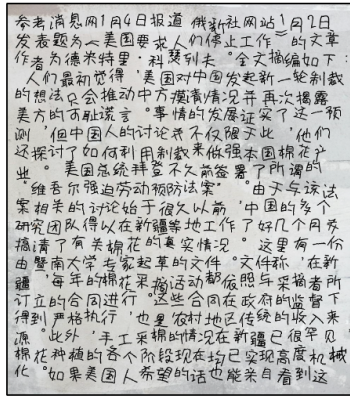 参考消息网1月4日报道 俄新社网站1月2日
发表题为《美国要求人们停止工作》的文章
作者为德米特里·科瑟列夫。全文摘编如下：
人们最初觉得，美国对中国发起新一轮制裁
的想法只会推动中方摸清情况并再次揭露
美方的可耻谎言。事情的发展证实了这一预
测，但中国人的讨论并不仅限于此，他们
还探讨了如何利用制裁来做强本国棉花产
业。美国总统拜登不久前签署了所谓的
“维吾尔强迫劳动预防法案”。由于与该法
案相关的讨论始于很久以前，中国的多个
研究团队得以在新疆等地工作了好几个月，
搞清了有关棉花的真实情况。这里有一份
由暨南大学专家起草的文件。文件称，在新
疆，每年的棉花采摘活动都依照与采摘者所
订立的合同进行。这些合同在政府的监督下
得到严格执行，也是农村地区传统的收入来
源。此外，手工采棉的情况在新疆已很罕见，
棉花种植的各个阶段现在均已实现高度机械
化。如果美国人希望的话也能亲自看到这